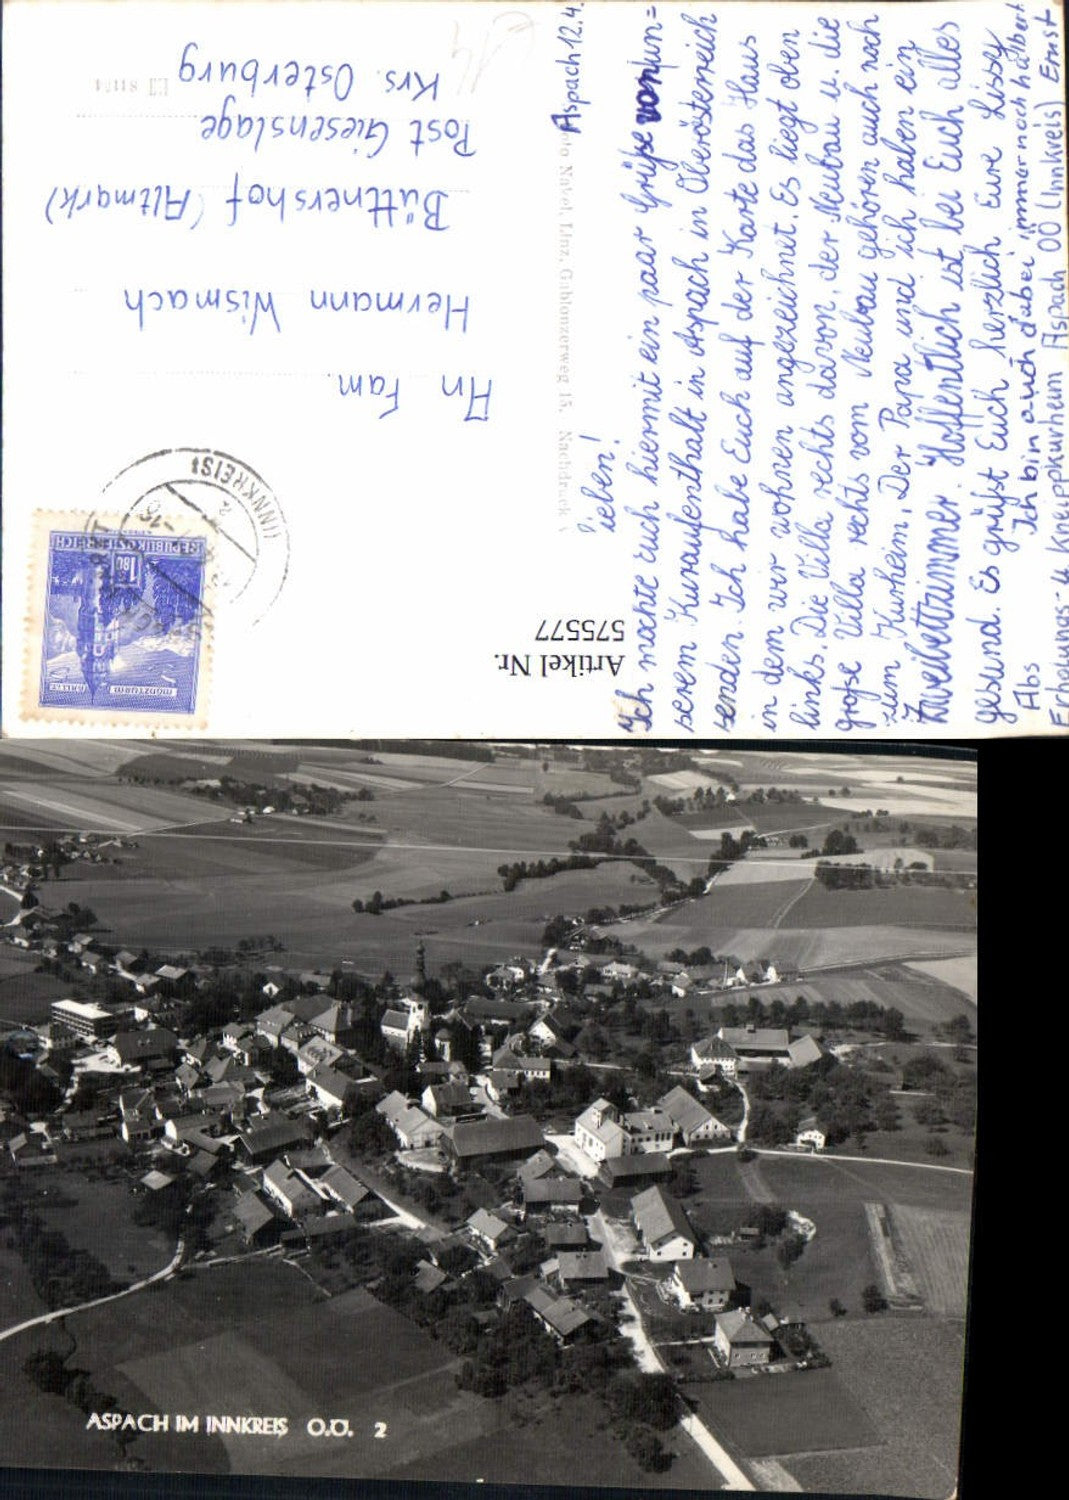 Aspach 12.4.
Ihr
lieben!
Ich möchte euch hiermit ein paar Grüße von un=
serem Kuraufenthalt in Aspach in Oberösterreich
senden. Ich habe Euch auf der Karte das Haus
in dem wir wohnen angezeichnet. Es liegt oben
links. Die Villa rechts davon, der Neubau u. die
große Villa rechts vom Neubau gehören auch noch
zum Kurheim. Der Papa und ich haben ein
Zweibettzimmer. Hoffentlich ist bei Euch alles
gesund. Es grüßt Euch herzlich Eure Lissy
Ich bin auch dabei immer noch halbert
Abs
Erholungs- u Kneippkurheim Aspach OÖ (Innkreis) Ernst
Foto Nickel, Linz, Gablonzerweg 15. Nachdruck
Artikel Nr.
575577
REPUBLIK ÖSTERREICH
1.80
MÜNZTURM
HALL I. T.
(INNKREIS)
An Fam
Hermann Wismach
Büttnershof (Altmark)
Post Giesenslage
Krs. Osterburg
ASPACH IM INNKREIS O.Ö. 2